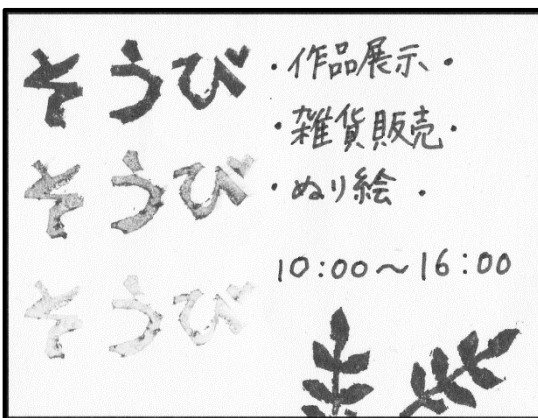 そうび
そうび
そうび
・作品展示・
・雑貨販売・
・ぬり絵・
10:00～16:00